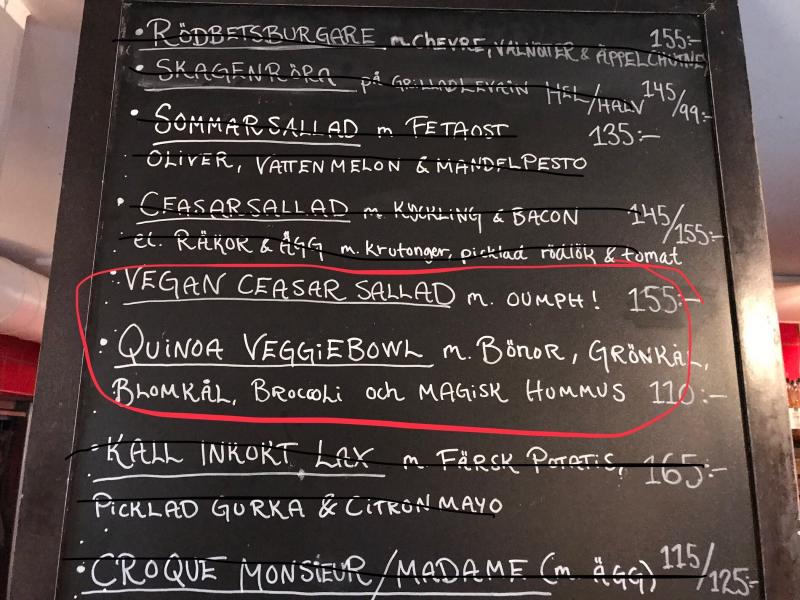 • RÖDBETSBURGARE m CHEVRE, VALNÖTTER & ÄPPELCHUTNEY 155:-
• SKAGENRÖRA på GRILLAD LEVAIN HEL/HALV 145/99:-
• SOMMARSALLAD m FETAOST 135:-
OLIVER, VATTENMELON & MANDELPESTO
• CEASARSALLAD m. KYCKLING & BACON 145/155:-
el. RÄKOR & ÄGG m. krutonger, picklad rödlök & tomat
• VEGAN CEASAR SALLAD m. OUMPH! 155:-
• QUINOA VEGGIEBOWL m. BÖNOR, GRÖNKÅL,
BLOMKÅL, BROCCOLI och MAGISK HUMMUS 110:-
• KALL INKOKT LAX m FÄRSK POTATIS, 165:-
PICKLAD GURKA & CITRONMAYO
• CROQUE MONSIEUR/MADAME (m. ÄGG) 115/125:-